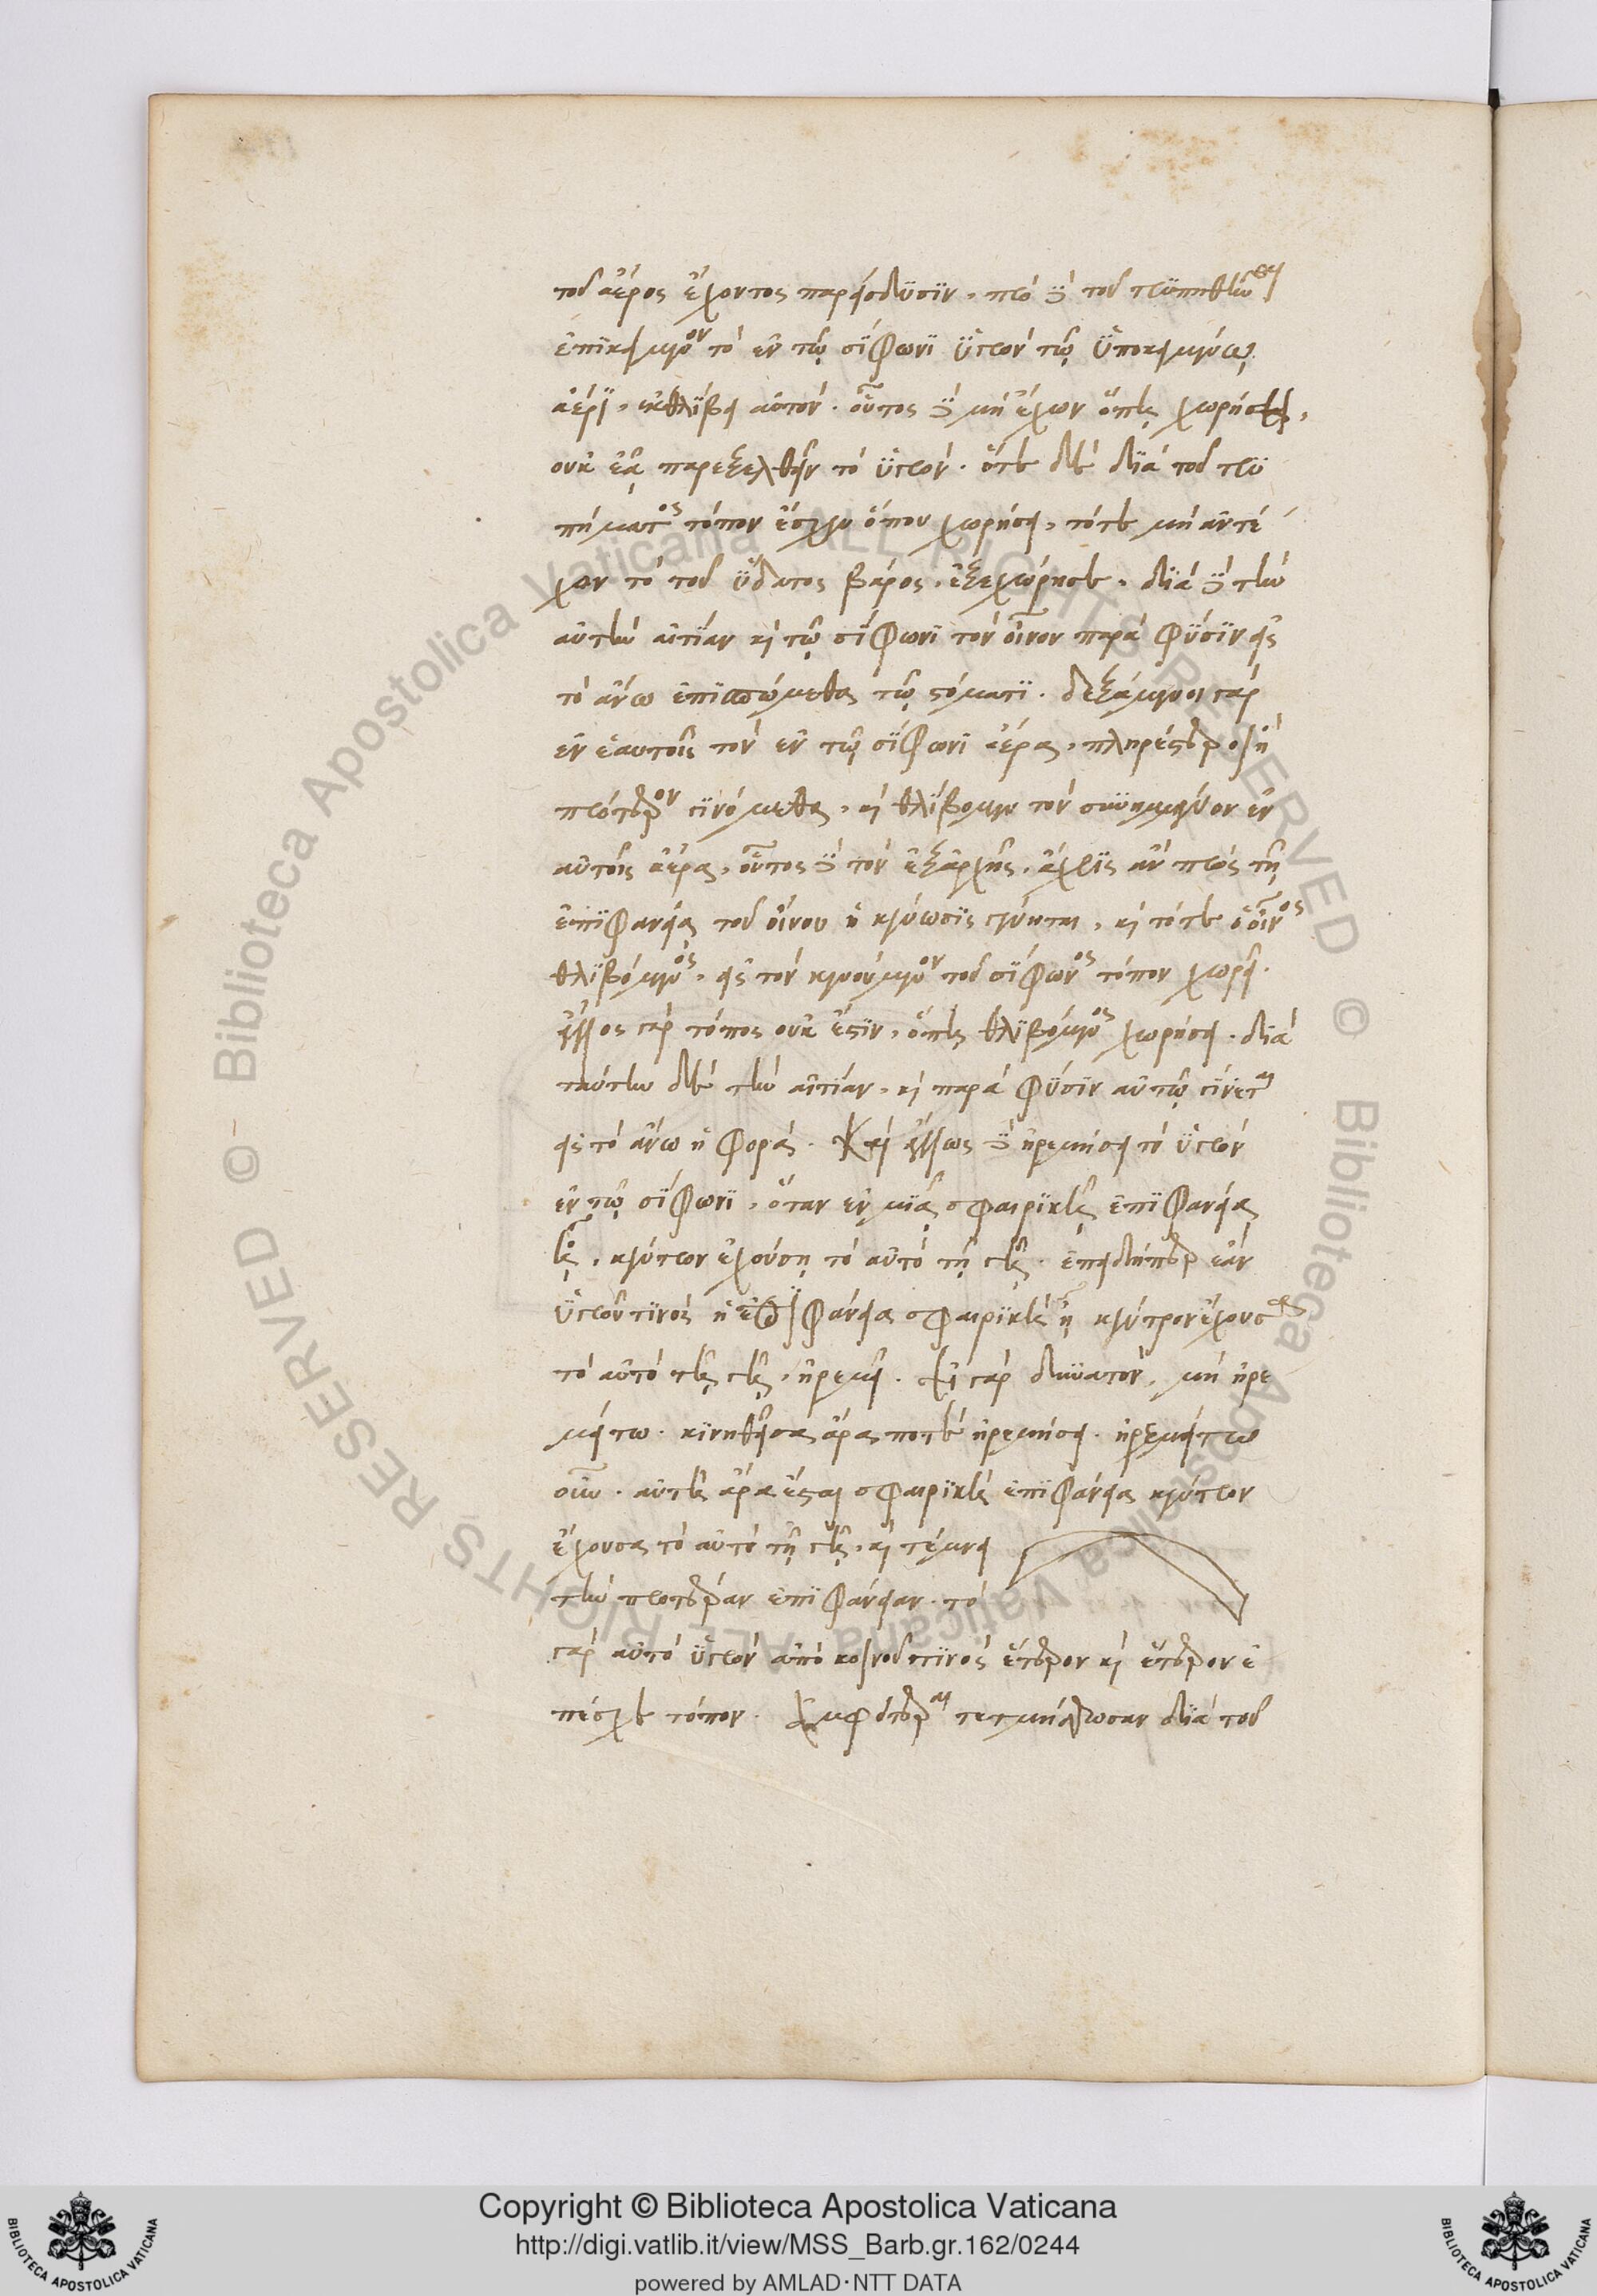 τοῦ ἀέρος ἔχοντος παρείσδυσιν, πρὸ δὲ τοῦ τρυπηθῆναι
ἐπικείμενον τὸ ἐν τῷ σίφωνι ὑγρὸν τῷ ὑποκειμένῳ
ἀέρι, ἐκθλίβει αὐτόν. οὗτος δὲ μὴ ἔχων ὅπῃ χωρήσει,
οὐκ ἐᾷ παρεξελθεῖν τὸ ὑγρόν. ὅτε δὲ διὰ τοῦ τρυ
πήματος τόπον ἔσχεν ὅπου χωρήσει, τότε μὴ ἀντέ
χων τὸ τοῦ ὕδατος βάρος, ἐξεχώρησε. διὰ δὲ τὴν
αὐτὴν αἰτίαν καὶ τῷ σίφωνι τὸν οἶνον παρὰ φύσιν εἰς
τὸ ἄνω ἐπισπώμεθα τῷ στόματι. δεξάμενοι γὰρ
ἐν ἑαυτοῖς τὸν ἐν τῷ σίφωνι ἀέρα, πληρέστεροι ἢ
πρότερον γινόμεθα, καὶ θλίβομεν τὸν συνημμένον ἐν
αὐτοῖς ἀέρα, οὗτος δὲ τὸν ἐξαρχῆς, ἄχρις ἂν πρὸς τῇ
ἐπιφανείᾳ τοῦ οἴνου ἡ κένωσις γένηται, καὶ τότε ὁ οἶνος
θλιβόμενος, εἰς τὸν κενούμενον τοῦ σίφωνος τόπον χωρεῖ.
ἄλλος γὰρ τόπος οὐκ ἔστιν, ὅπῃ θλιβόμενος χωρήσει. διὰ
ταύτην δὲ τὴν αἰτίαν, καὶ παρὰ φύσιν αὐτῷ γίνεται
εἰς τὸ ἄνω ἡ φορά. Καὶ ἄλλως δὲ ἠρεμήσει τὸ ὑγρὸν
ἐν τῷ σίφωνι, ὅταν ἐν μιᾷ σφαιρικῇ ἐπιφανείᾳ
ᾖ, κέντρον ἐχούσῃ τὸ αὐτὸ τῇ γῇ. ἐπειδήπερ ἐὰν
ὑγροῦ τινος ἡ ἐπιφάνεια σφαιρικὴ ᾖ κέντρον ἔχουσα
τὸ αὐτὸ τῇ γῇ, ἠρεμεῖ. εἰ γὰρ δυνατόν, μὴ ἠρε
μείτω. κινηθεῖσα ἄρα ποτὲ ἠρεμήσει. ἠρεμείτω
οὖν. αὐτὴ ἄρα ἔσται σφαιρικὴ ἐπιφάνεια κέντρον
ἔχουσα τὸ αὐτὸ τῇ γῇ, καὶ τέμνει
τὴν προτέραν ἐπιφάνειαν. τὸ
γὰρ αὐτὸ ὑγρὸν ἀπὸ κοινοῦ τινος ἕτερον καὶ ἕτερον ἐ
πέσχε τόπον. ἀμφότεραι τετμήσθωσαν διὰ τοῦ
Copyright © Biblioteca Apostolica Vaticana
http://digi.vatlib.it/view/MSS_Barb.gr.162/0244
powered by AMLAD·NTT DATA